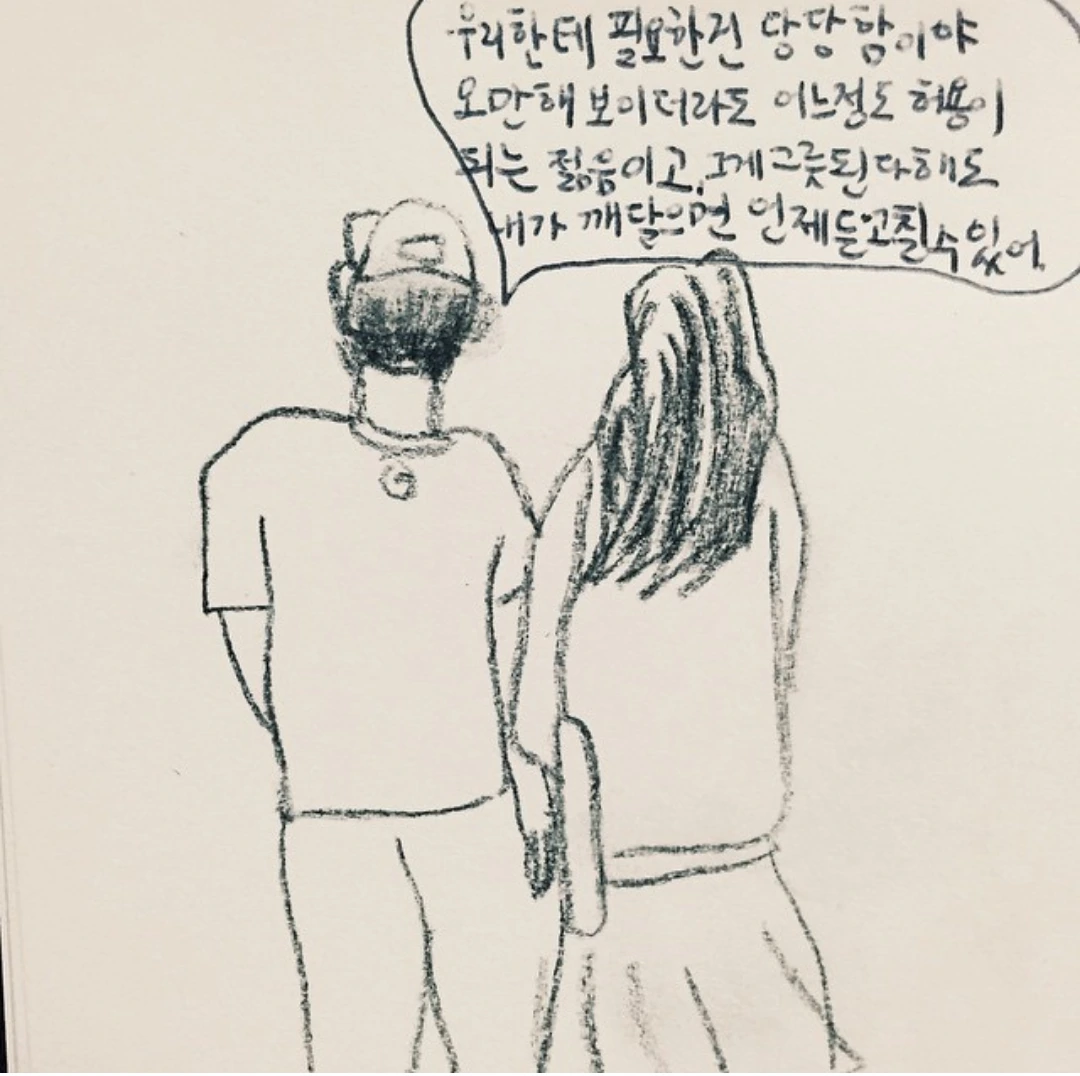 우리한테 필요한건 당당함이야
오만해 보이더라도 어느정도 허용이
되는 젊음이고, 그게 그릇된다해도
내가 깨달으면 언제든 고칠 수 있어.